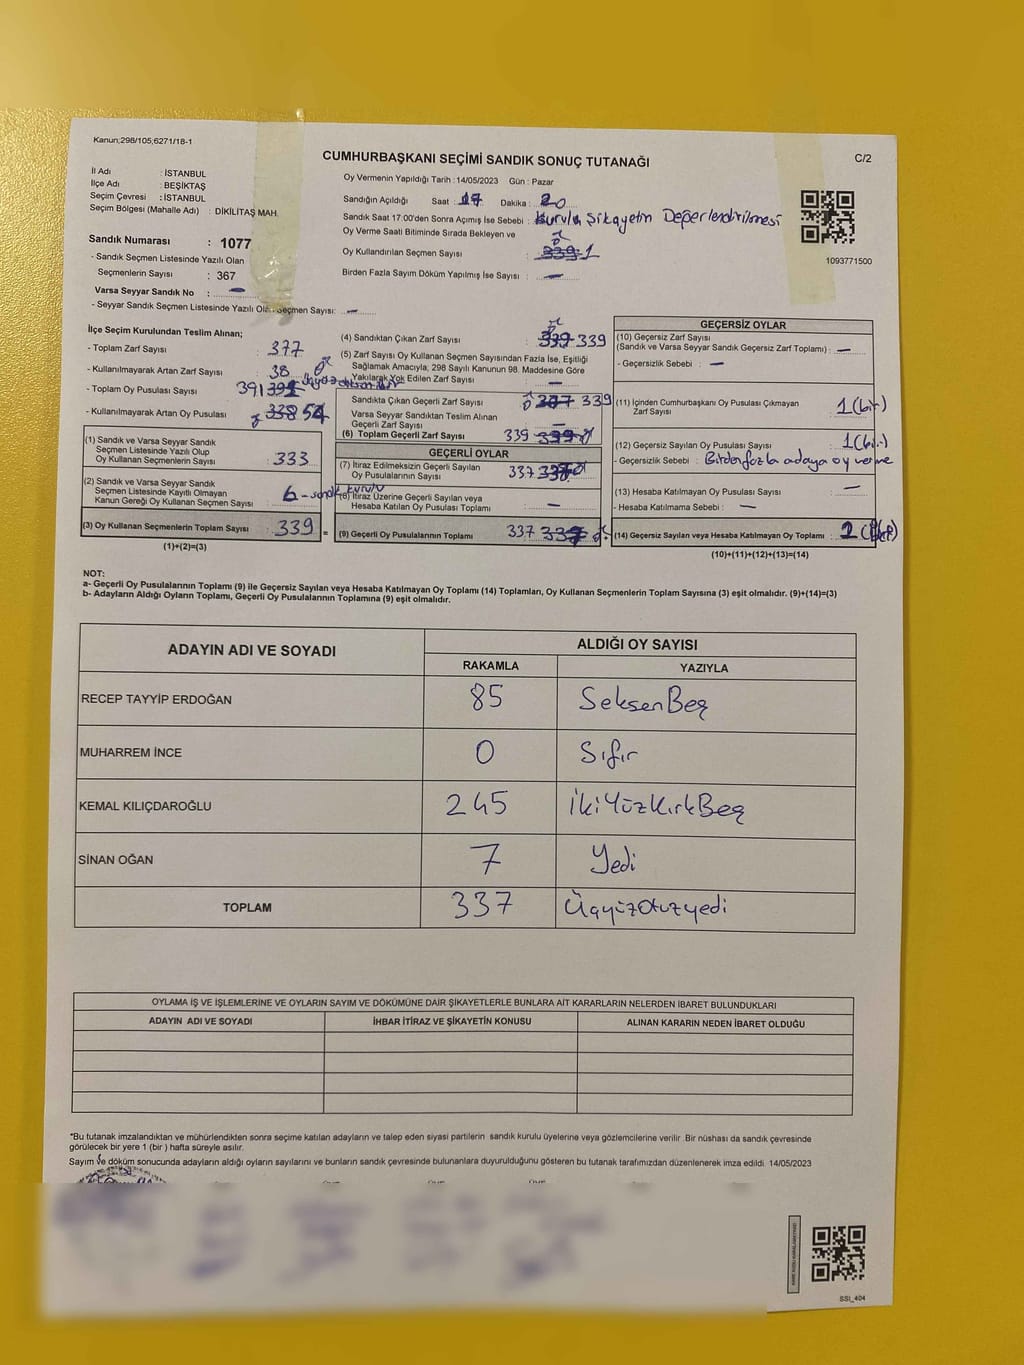 Kanun;298/105;6271/18-1
CUMHURBAŞKANI SEÇİMİ SANDIK SONUÇ TUTANAĞI
C/2
İl Adı : İSTANBUL
İlçe Adı : BEŞİKTAŞ
Seçim Çevresi : İSTANBUL
Seçim Bölgesi (Mahalle Adı) : DİKİLİTAŞ MAH.
Oy Vermenin Yapıldığı Tarih :14/05/2023 Gün : Pazar
Sandığın Açıldığı Saat : 17 Dakika : 20
Sandık Saat 17.00'den Sonra Açımış İse Sebebi : Kurula Şikayetin Değerlendirilmesi
Oy Verme Saati Bitiminde Sırada Bekleyen ve
Oy Kullandırılan Seçmen Sayısı : 339 1
Birden Fazla Sayım Döküm Yapılmış İse Sayısı : —
1093771500
Sandık Numarası : 1077
- Sandık Seçmen Listesinde Yazılı Olan
Seçmenlerin Sayısı : 367
Varsa Seyyar Sandık No : —
- Seyyar Sandık Seçmen Listesinde Yazılı Olan Seçmen Sayısı: —
İlçe Seçim Kurulundan Teslim Alınan;
- Toplam Zarf Sayısı : 377
- Kullanılmayarak Artan Zarf Sayısı : 38
- Toplam Oy Pusulası Sayısı : 391
- Kullanılmayarak Artan Oy Pusulası : 338 54
(1) Sandık ve Varsa Seyyar Sandık
Seçmen Listesinde Yazılı Olup
Oy Kullanan Seçmenlerin Sayısı : 333
(2) Sandık ve Varsa Seyyar Sandık
Seçmen Listesinde Kayıtlı Olmayan
Kanun Gereği Oy Kullanan Seçmen Sayısı : 6 - sandık kurulu
(3) Oy Kullanan Seçmenlerin Toplam Sayısı : 339 =
(1)+(2)=(3)
(4) Sandıktan Çıkan Zarf Sayısı : 339 339
(5) Zarf Sayısı Oy Kullanan Seçmen Sayısından Fazla İse, Eşitliği
Sağlamak Amacıyla; 298 Sayılı Kanunun 98. Maddesine Göre
Yakılarak Yok Edilen Zarf Sayısı : —
Sandıkta Çıkan Geçerli Zarf Sayısı : 337 339
Varsa Seyyar Sandıktan Teslim Alınan
Geçerli Zarf Sayısı : —
(6) Toplam Geçerli Zarf Sayısı 339 339
GEÇERLİ OYLAR
(7) İtiraz Edilmeksizin Geçerli Sayılan
Oy Pusulalarının Sayısı : 337
(8) İtiraz Üzerine Geçerli Sayılan veya
Hesaba Katılan Oy Pusulası Toplamı : —
(9) Geçerli Oy Pusulalarının Toplamı 337
GEÇERSİZ OYLAR
(10) Geçersiz Zarf Sayısı
(Sandık ve Varsa Seyyar Sandık Geçersiz Zarf Toplamı) : —
- Geçersizlik Sebebi : —
(11) İçinden Cumhurbaşkanı Oy Pusulası Çıkmayan
Zarf Sayısı : 1 (bir)
(12) Geçersiz Sayılan Oy Pusulası Sayısı : 1 (bir)
- Geçersizlik Sebebi : Birden fazla adaya oy verme
(13) Hesaba Katılmayan Oy Pusulası Sayısı : —
- Hesaba Katılmama Sebebi : —
(14) Geçersiz Sayılan veya Hesaba Katılmayan Oy Toplamı : 2
(10)+(11)+(12)+(13)=(14)
NOT:
a- Geçerli Oy Pusulalarının Toplamı (9) ile Geçersiz Sayılan veya Hesaba Katılmayan Oy Toplamı (14) Toplamları, Oy Kullanan Seçmenlerin Toplam Sayısına (3) eşit olmalıdır. (9)+(14)=(3)
b- Adayların Aldığı Oyların Toplamı, Geçerli Oy Pusulalarının Toplamına (9) eşit olmalıdır.
ADAYIN ADI VE SOYADI
ALDIĞI OY SAYISI
RAKAMLA YAZIYLA
RECEP TAYYİP ERDOĞAN 85 SeksenBeş
MUHARREM İNCE 0 Sıfır
KEMAL KILIÇDAROĞLU 245 İkiYüzKırkBeş
SİNAN OĞAN 7 Yedi
TOPLAM 337 Üçyüzotuzyedi
OYLAMA İŞ VE İŞLEMLERİNE VE OYLARIN SAYIM VE DÖKÜMÜNE DAİR ŞİKAYETLERLE BUNLARA AİT KARARLARIN NELERDEN İBARET BULUNDUKLARI
ADAYIN ADI VE SOYADI İHBAR İTİRAZ VE ŞİKAYETİN KONUSU ALINAN KARARIN NEDEN İBARET OLDUĞU
*Bu tutanak imzalandıktan ve mühürlendikten sonra seçime katılan adayların ve talep eden siyasi partilerin sandık kurulu üyelerine veya gözlemcilerine verilir .Bir nüshası da sandık çevresinde
görülecek bir yere 1 (bir ) hafta süreyle asılır.
Sayım ve döküm sonucunda adayların aldığı oyların sayılarını ve bunların sandık çevresinde bulunanlara duyurulduğunu gösteren bu tutanak tarafımızdan düzenlenerek imza edildi. 14/05/2023
SSI_404